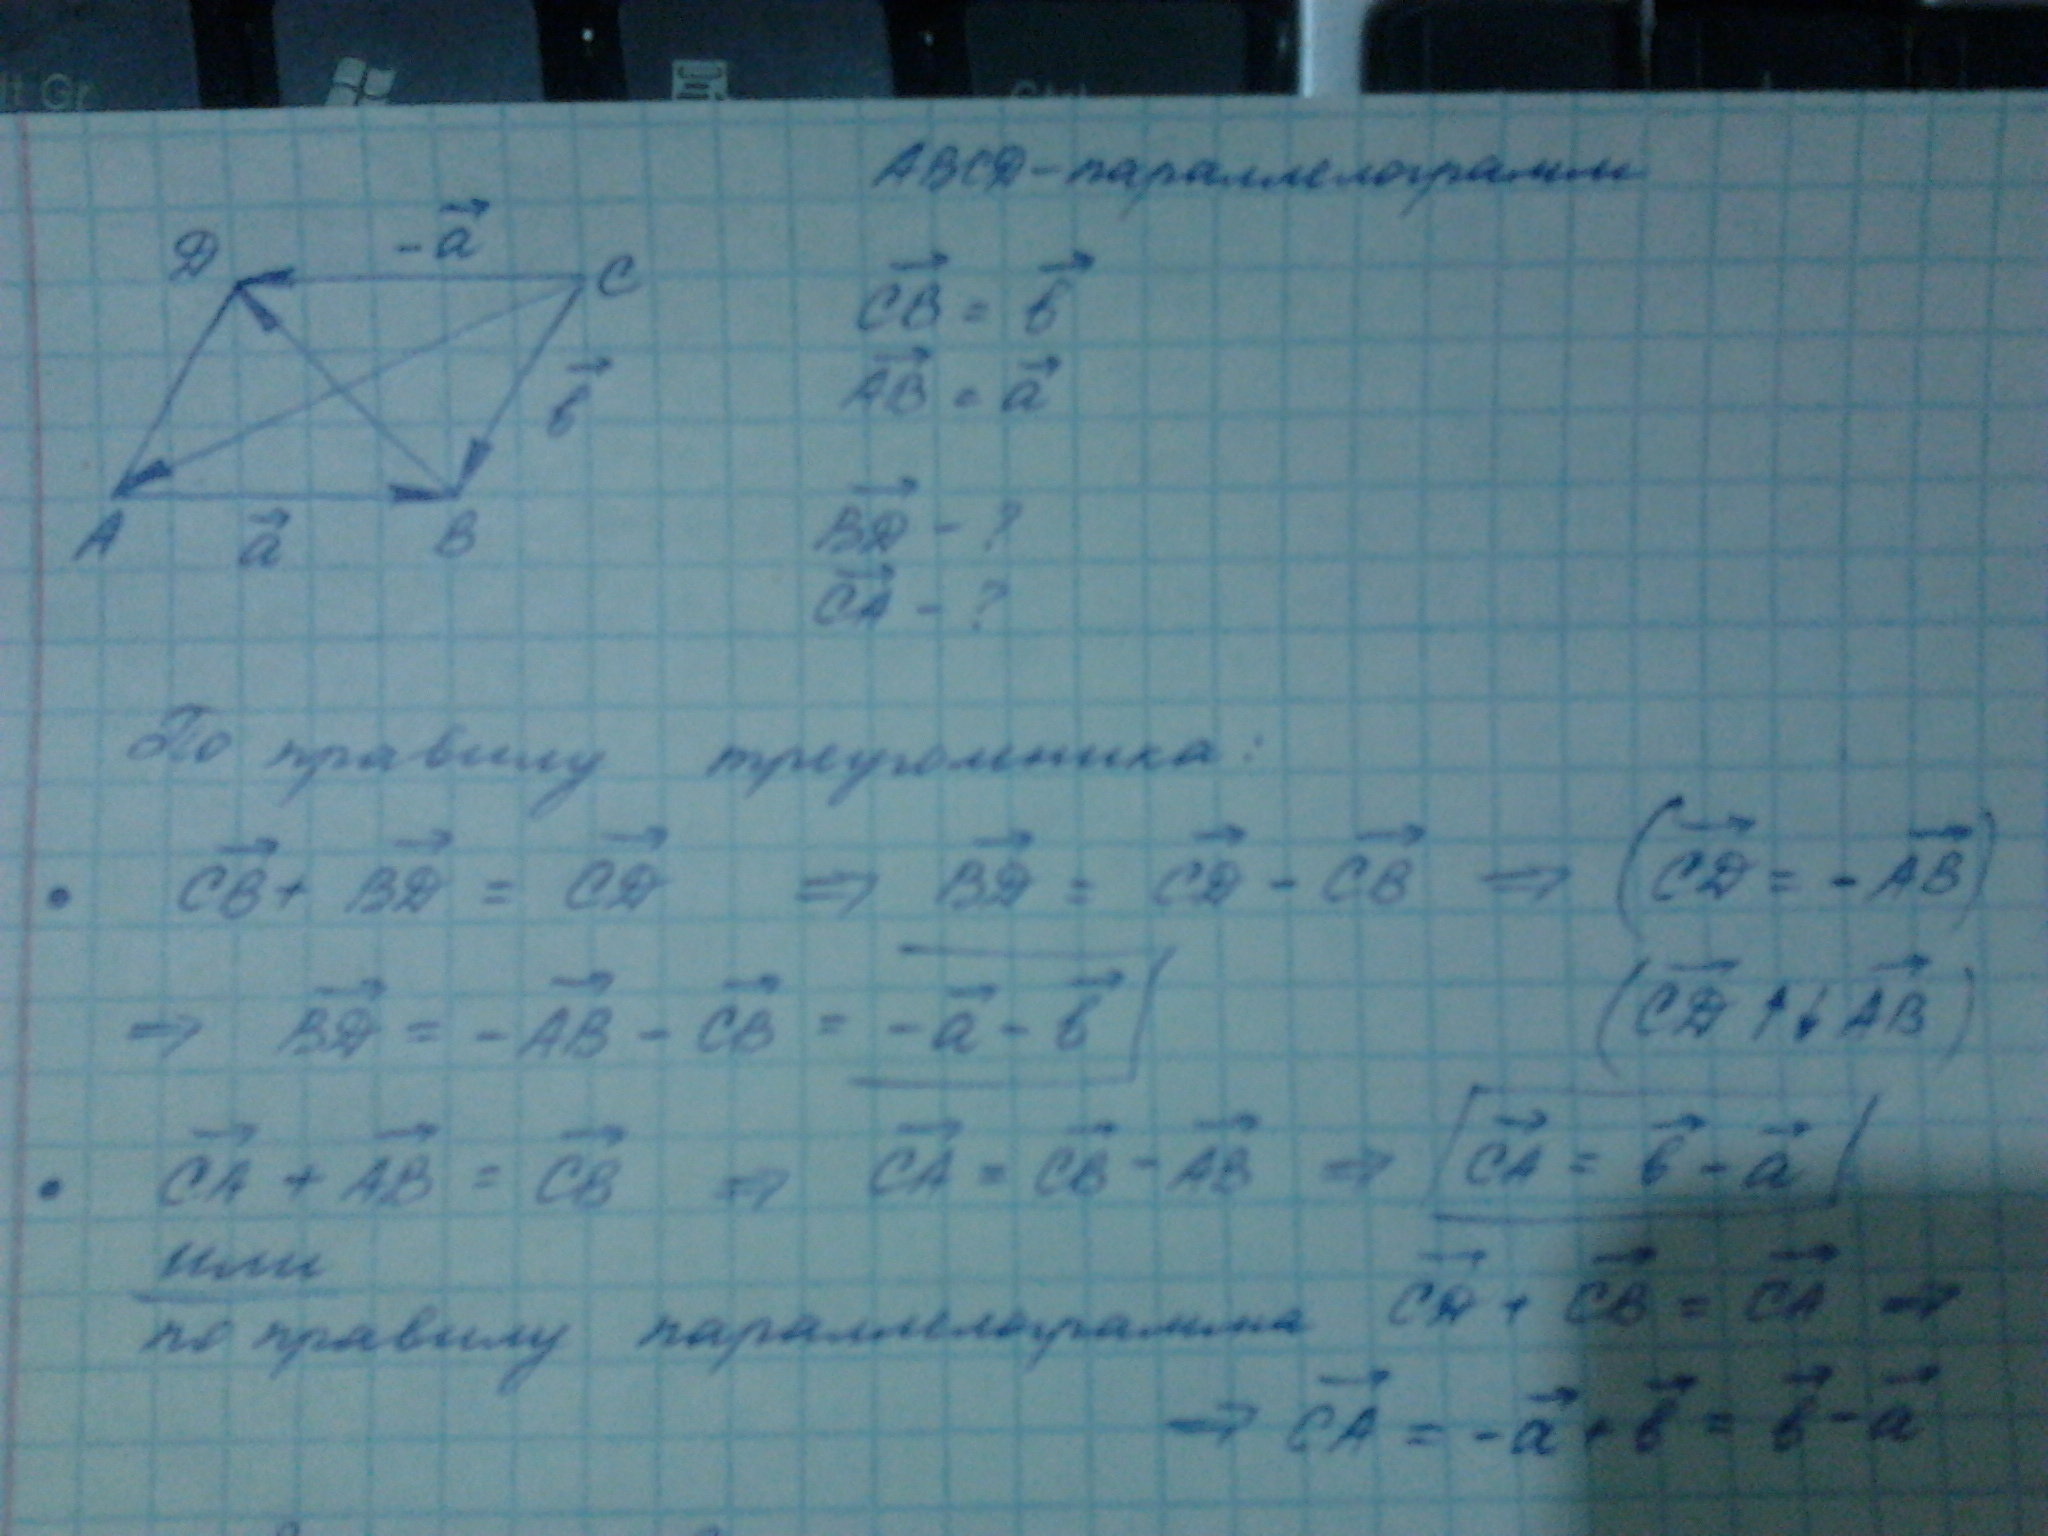 lt Gr
Ctrl
ABCD - параллелограмм
-a⃗
D C
CB⃗ = b⃗
b⃗
AB⃗ = a⃗
A a⃗ B
BD⃗ - ?
CA⃗ - ?
По правилу треугольника:
• CB⃗ + BD⃗ = CD⃗ ⇒ BD⃗ = CD⃗ - CB⃗ ⇒ (CD⃗ = -AB⃗)
(CD⃗ ↑↓ AB⃗)
⇒ BD⃗ = -AB⃗ - CB⃗ = -a⃗ - b⃗
• CA⃗ + AB⃗ = CB⃗ ⇒ CA⃗ = CB⃗ - AB⃗ ⇒ CA⃗ = b⃗ - a⃗
или
по правилу параллелограмма CD⃗ + CB⃗ = CA⃗ ⇒
⇒ CA⃗ = -a⃗ + b⃗ = b⃗ - a⃗